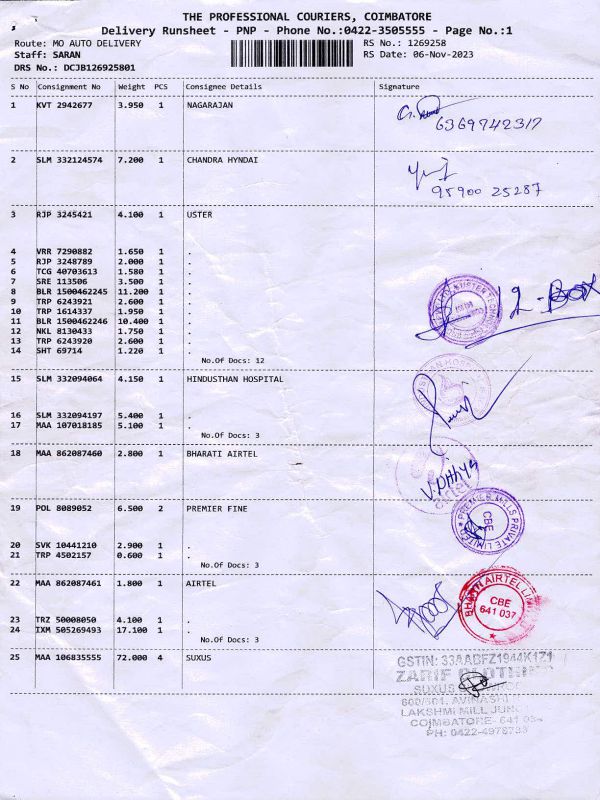 THE PROFESSIONAL COURIERS, COIMBATORE
Delivery Runsheet - PNP - Phone No.:0422-3505555 - Page No.:1
Route: MO AUTO DELIVERY RS No.: 1269258
Staff: SARAN RS Date: 06-Nov-2023
DRS No.: DCJB126925801
S No Consignment No Weight PCS Consignee Details Signature
1 KVT 2942677 3.950 1 NAGARAJAN
6369742317
2 SLM 332124574 7.200 1 CHANDRA HYNDAI
95900 25287
3 RJP 3245421 4.100 1 USTER
4 VRR 7290882 1.650 1 .
5 RJP 3248789 2.000 1 .
6 TCG 40703613 1.580 1 .
7 SRE 113506 3.500 1 .
8 BLR 1500462245 11.200 1 .
9 TRP 6243921 2.600 1 .
12-BOX
10 TRP 1614337 1.950 1 .
11 BLR 1500462246 10.400 1 .
12 NKL 8130433 1.750 1 .
13 TRP 6243920 2.600 1 .
14 SHT 69714 1.220 1 .
No.Of Docs: 12
15 SLM 332094064 4.150 1 HINDUSTHAN HOSPITAL
16 SLM 332094197 5.400 1 .
17 MAA 107018185 5.100 1 .
No.Of Docs: 3
18 MAA 862087460 2.800 1 BHARATI AIRTEL
19 POL 8089052 6.500 2 PREMIER FINE
PREMIER MILLS PRIVATE LIMITED
CBE
20 SVK 10441210 2.900 1 .
21 TRP 4502157 0.600 1 .
No.Of Docs: 3
22 MAA 862087461 1.800 1 AIRTEL
BHARTI AIRTEL
CBE
641 037
23 TRZ 50008050 4.100 1 .
24 IXM 505269493 17.100 1 .
No.Of Docs: 3
25 MAA 106835555 72.000 4 SUXUS
GSTIN: 33AABFZ1944K1Z1
ZARIF
SUXUS
LAKSHMI MILL
COIMBATORE- 641
PH: 0422-4978733